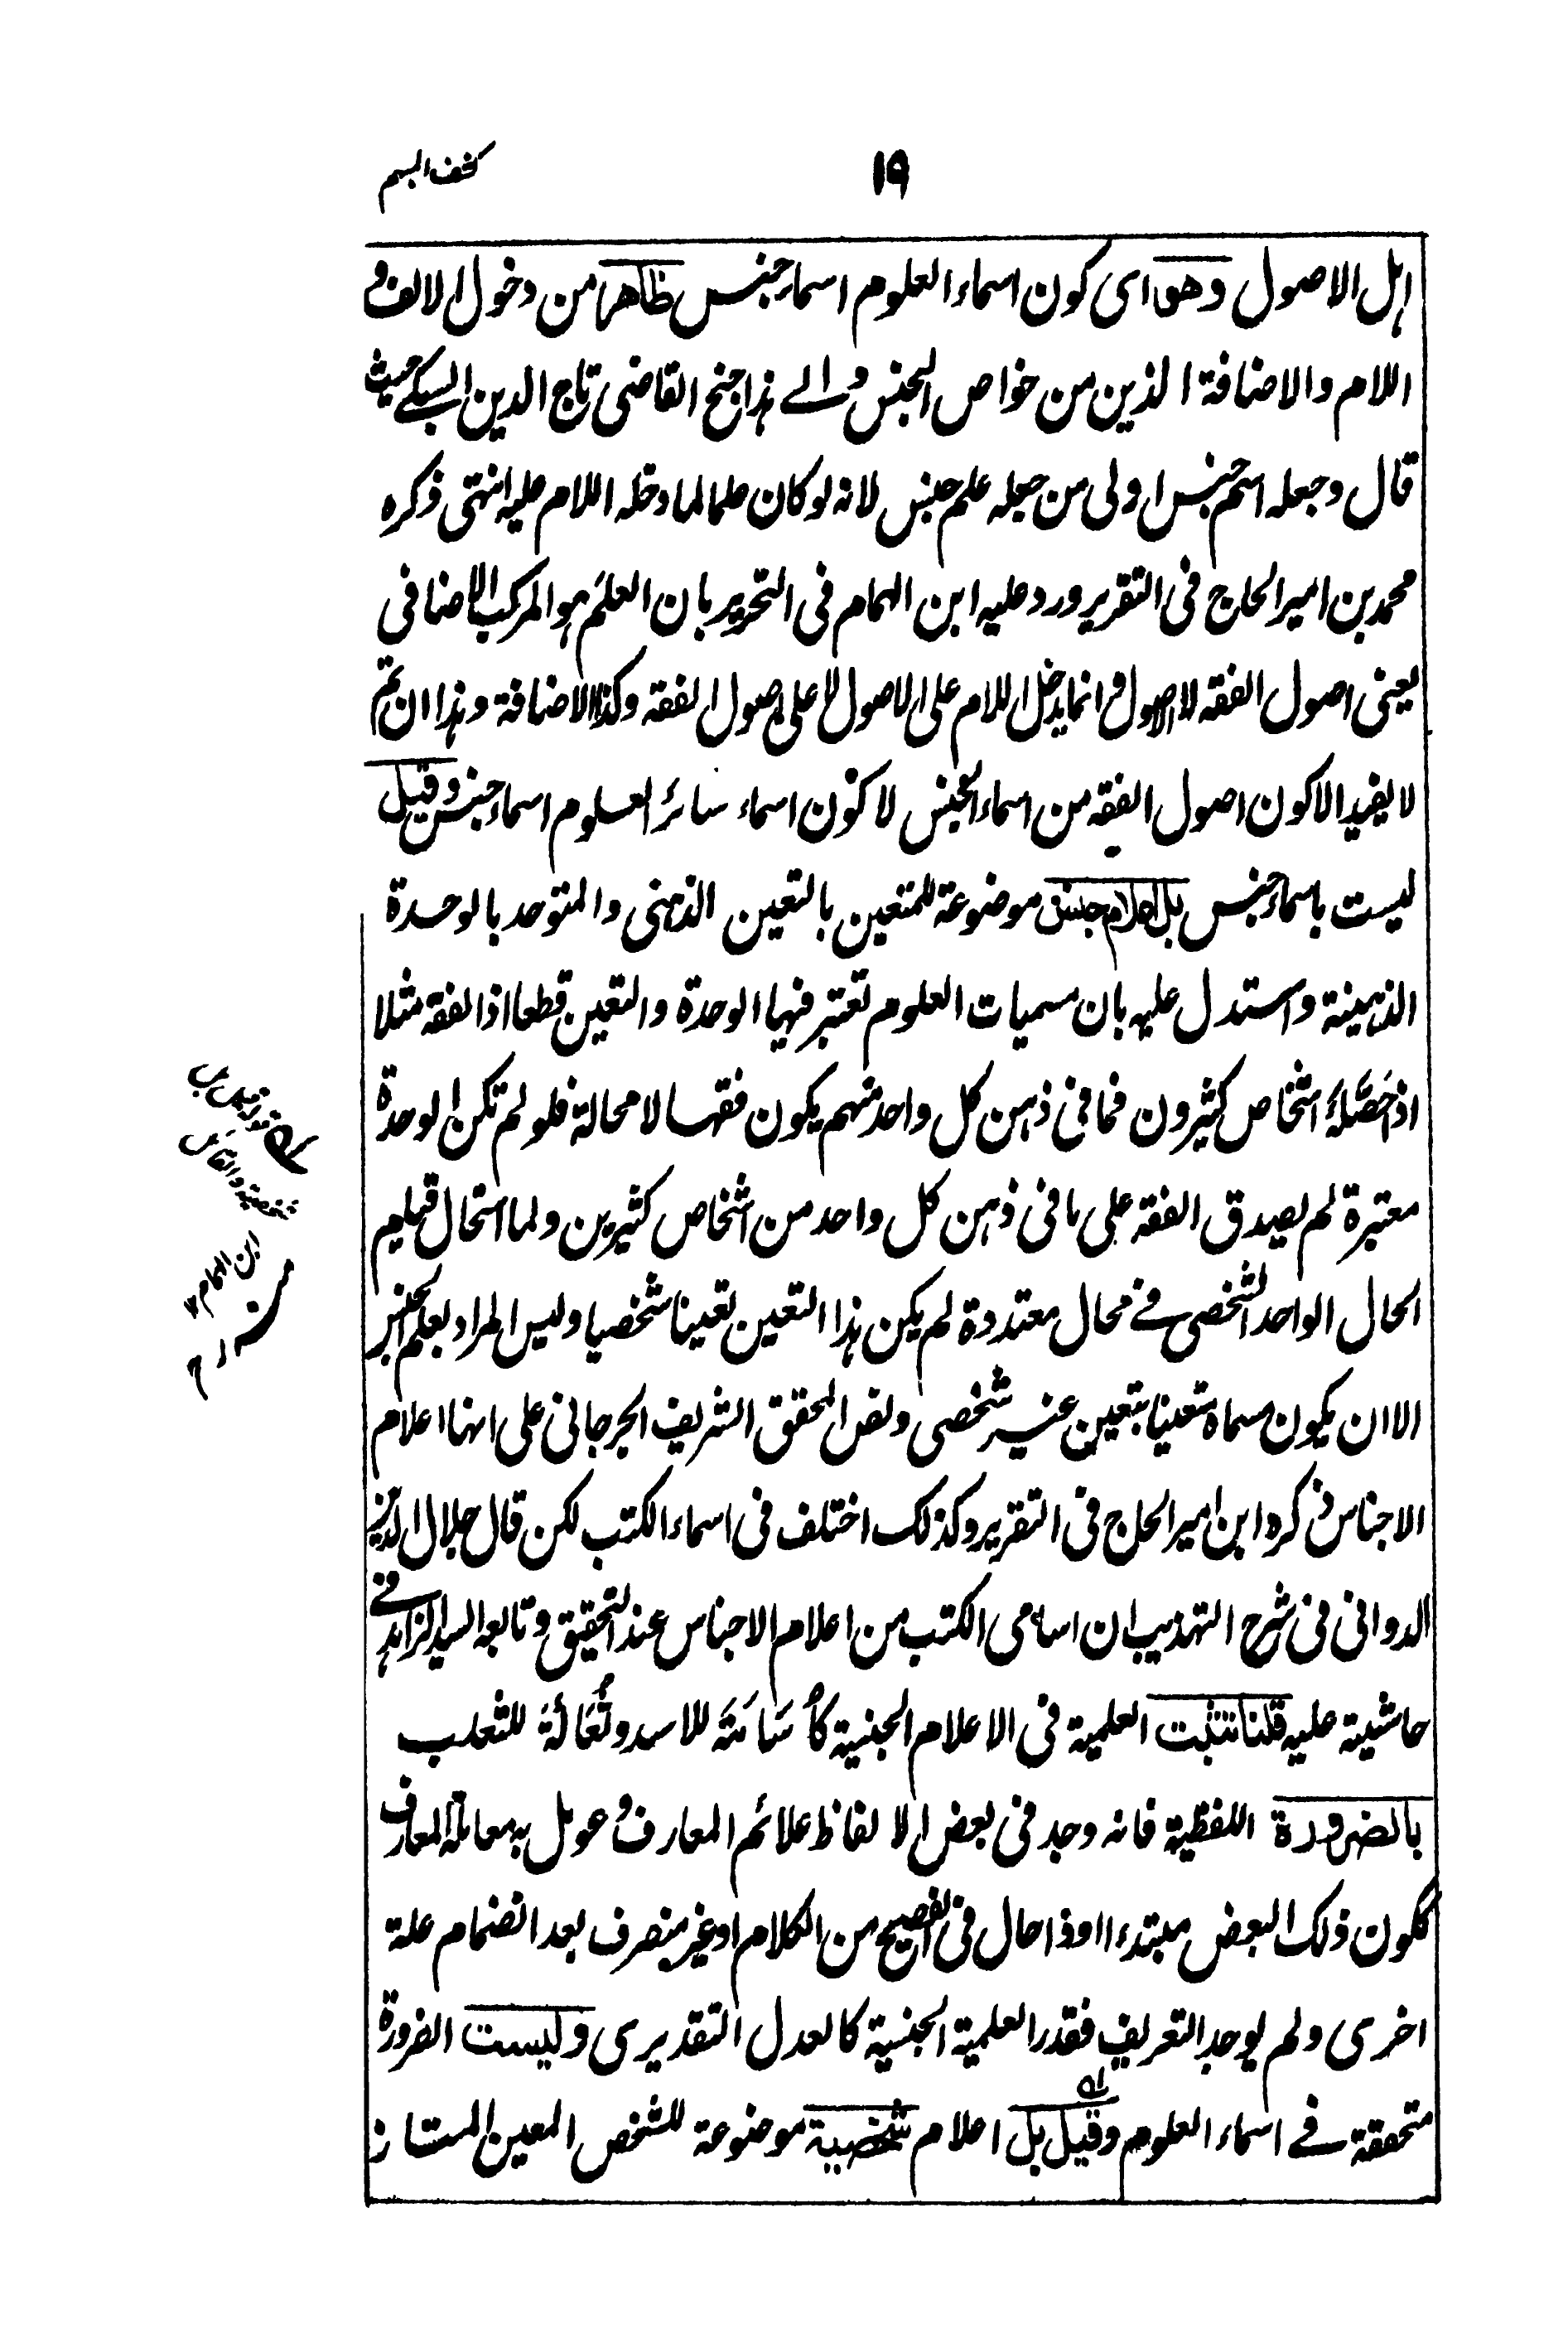 كشف المبهم
١٩
اہل الاصول وهو ای كون اسماء العلوم اسماء جنس ظاهر من دخول الالف و
اللام والاضافة الذين من خواص الجنس والے ہذا جنح القاضی تاج الدين السبكے حيث
قال وجعله اسم جنس اولی من جعله علم جنس لانه لو كان علما لما دخله اللام عليه انتهی ذكره
محمد بن امير الحاج فی التقرير ورد عليه ابن الہمام فی التحرير بان العلم ہو المركب الاضافی
يعنی اصول الفقه لا الاصول وانما يدخل اللام علی الاصول لا علی اصول الفقه وكذا الاضافة وہذا ان تم
لا يفيد الا كون اصول الفقه من اسماء الجنس لا كون اسماء سائر العلوم اسماء جنس وقيل
ليست باسماء جنس بل اعلام جنس موضوعة للمتعين بالتعين الذہنی والمتوحد بالوحدة
الذہينة واستدل عليه بان مسميات العلوم تعتبر فيها الوحدة والتعين قطعا اذ الفقه مثلا
اذ احصَّله اشخاص كثيرون فما فی ذہن كل واحد منهم يكون فقها لا محالة فلو لم تكن الوحدة
معتبرة لم يصدق الفقه علی ما فی ذہن كل واحد من اشخاص كثيرين ولما استحال قيام
الحال الواحد الشخصی فے محال معتددة لم يكن ہذا التعين تعينا شخصيا وليس المراد بعلم الجنس
الا ان يكون مسماه متعينا بتعين غير شخصی ونص المحقق الشريف الجرجانی علی انها اعلام
الاجناس ذكره ابن امير الحاج فی التقرير وكذلك اختلف فی اسماء الكتب لكن قال جلال الدين
الدوانی فی شرح التهذيب ان اسامی الكتب من اعلام الاجناس عند التحقيق وتابعه السيد الزاہد فے
حاشية عليه قلنا تثبت العلمية فی الاعلام الجنسية كأُسَامَةَ للاسد وثُعَالَةَ للثعلب
بالضرورة اللفظية فانه وجد فی بعض الالفاظ علائم المعارف وعومل به معاملة المعارف
ككون ذلك البعض مبتدءا او ذا حال فی الفصيح من الكلام او غير منصرف بعد انضمام علة
اخری ولم يوجد التعريف فقدر العلمية الجنسية كالعدل التقديری وليست الضرورة
متحققة فے اسماء العلوم وقيل بل اعلام شخصية موضوعة للشخص المعين الممتاز
ابن الہمام